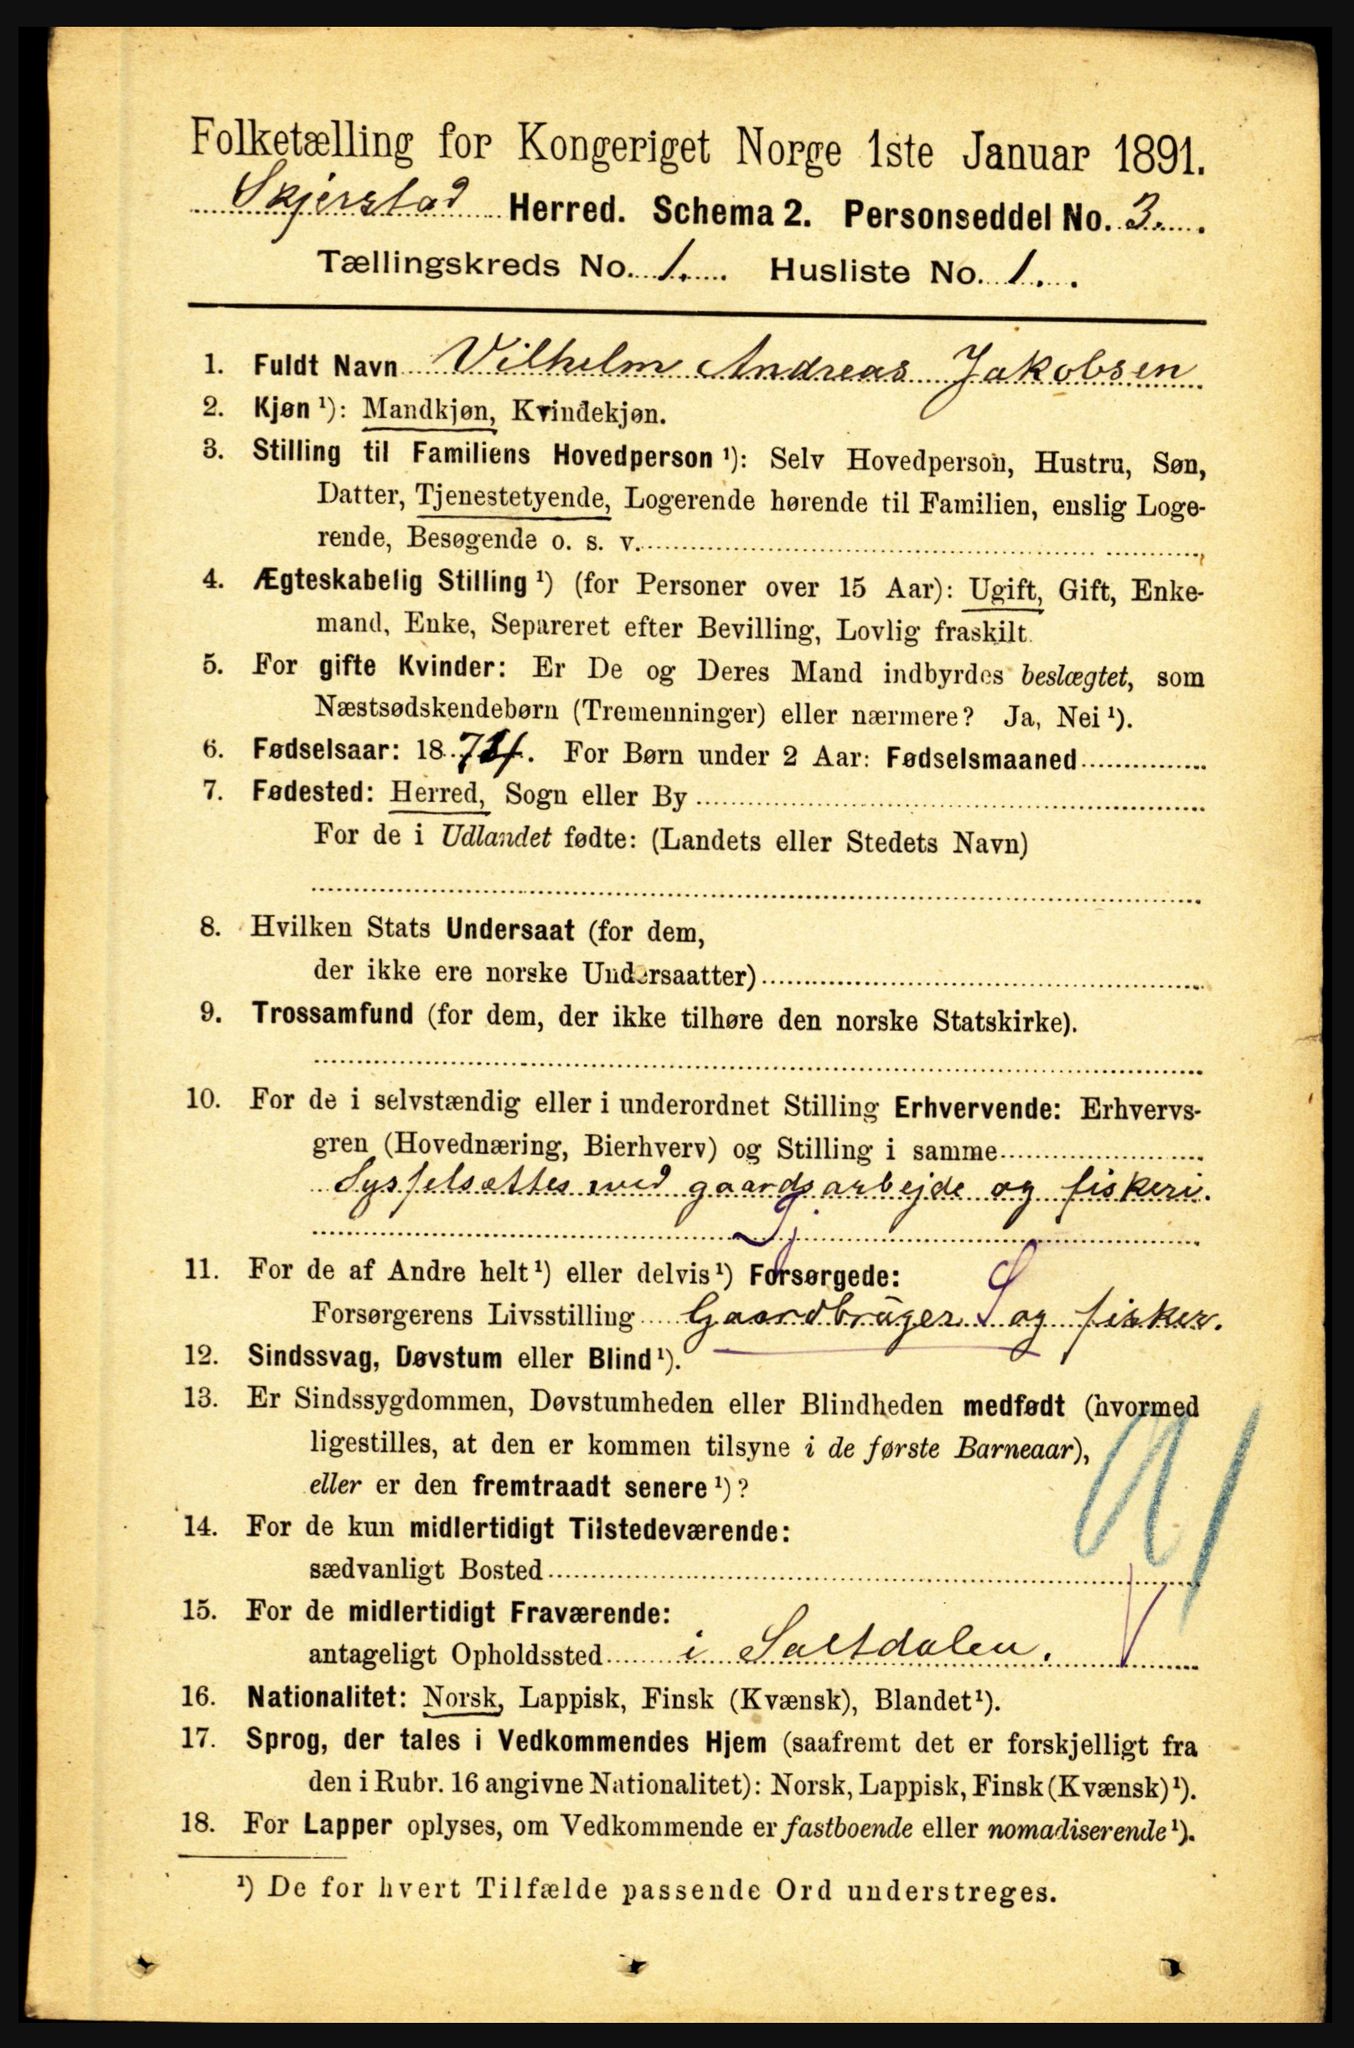 Folketælling for Kongeriget Norge 1ste Januar 1891.
Skjerstad Herred. Schema 2. Personseddel No. 3.
Tællingskreds No. 1. Husliste No. 1.
1. Fuldt Navn Vilhelm Andreas Jakobsen
2. Kjøn ¹): Mandkjøn, Kvindekjøn.
3. Stilling til Familiens Hovedperson ¹): Selv Hovedperson, Hustru, Søn,
Datter, Tjenestetyende, Logerende hørende til Familien, enslig Loge-
rende, Besøgende o. s. v.
4. Ægteskabelig Stilling ¹) (for Personer over 15 Aar): Ugift, Gift, Enke-
mand, Enke, Separeret efter Bevilling, Lovlig fraskilt.
5. For gifte Kvinder: Er De og Deres Mand indbyrdes beslægtet, som
Næstsødskendebørn (Tremenninger) eller nærmere? Ja, Nei ¹).
6. Fødselsaar: 18 . For Børn under 2 Aar: Fødselsmaaned
7. Fødested: Herred, Sogn eller By
For de i Udlandet fødte: (Landets eller Stedets Navn)
8. Hvilken Stats Undersaat (for dem,
der ikke ere norske Undersaatter)
9. Trossamfund (for dem, der ikke tilhøre den norske Statskirke).
10. For de i selvstændig eller i underordnet Stilling Erhvervende: Erhvervs-
gren (Hovednæring, Bierhverv) og Stilling i samme
Sysselsættes med gaardsarbejde og fiskeri.
Tj
11. For de af Andre helt ¹) eller delvis ¹) Forsørgede:
Forsørgerens Livsstilling Gaardbruger S og fisker.
12. Sindssvag, Døvstum eller Blind ¹).
13. Er Sindssygdommen, Døvstumheden eller Blindheden medfødt (hvormed
ligestilles, at den er kommen tilsyne i de første Barneaar),
eller er den fremtraadt senere ¹)?
14. For de kun midlertidigt Tilstedeværende:
sædvanligt Bosted
15. For de midlertidigt Fraværende:
antageligt Opholdssted i Saltdalen.
16. Nationalitet: Norsk, Lappisk, Finsk (Kvænsk), Blandet ¹).
17. Sprog, der tales i Vedkommendes Hjem (saafremt det er forskjelligt fra
den i Rubr. 16 angivne Nationalitet): Norsk, Lappisk, Finsk (Kvænsk) ¹).
18. For Lapper oplyses, om Vedkommende er fastboende eller nomadiserende ¹).
¹) De for hvert Tilfælde passende Ord understreges.